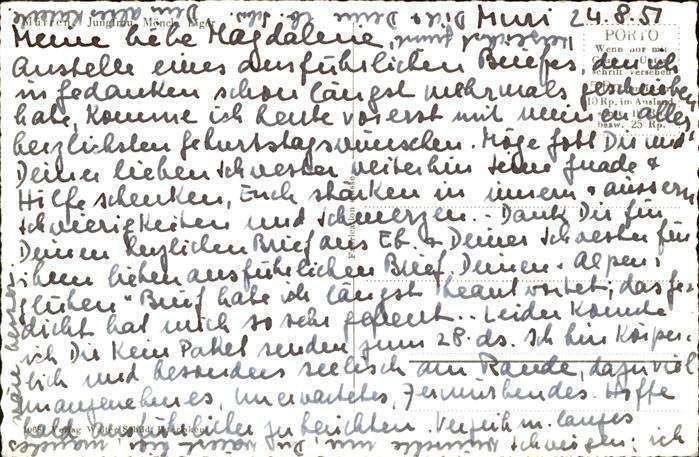 Muri 24.8.51
Meine liebe Magdalene,
Anstelle eines ausführlichen Briefes, den ich
in Gedanken schon längst mehrmals geschrieben
habe, komme ich heute vorerst mit meinen aller
herzlichsten Geburtstagswünschen. Möge Gott Dir und
Deiner lieben Schwester weiterhin seine Gnade &
Hilfe schenken, Euch stärken in innern & äussern
Schwierigkeiten und Schmerzen.. Dank Dir für
Deinen herzlichen Brief aus Eb. & Deiner Schwester für
ihren lieben ausführlichen Brief. Deinen "Alpen-
glühen" Brief habe ich längst beantwortet; das Ge-
dicht hat mich so sehr gefreut.. Leider konnte
ich Dir kein Paket senden zum 28. ds. Ich bin körper-
lich und besonders seelisch am Rande, dazu viel
Unangenehmes, Unerwartetes, Zermürbendes. Hoffe
ausführlicher zu berichten. Verzeih m. langes
Schweigen; ich
Mönch, Eiger
Jungfrau
PORTO
Wenn nur mit
schrift versehen
10 Rp. im Ausland
bezw. 25 Rp.